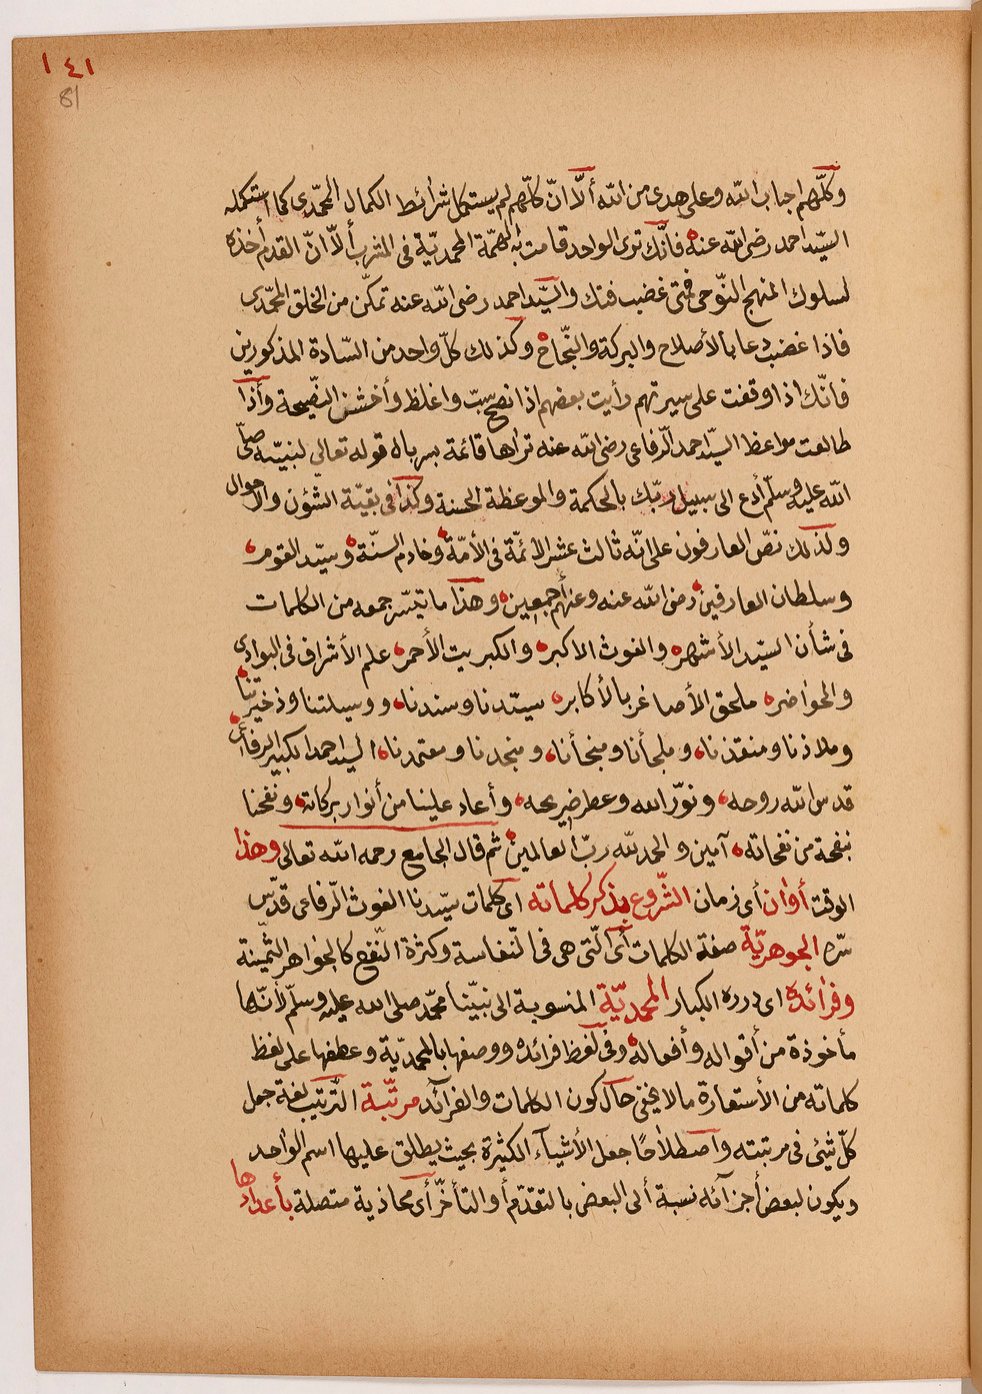 ١٤١
81
وكلّهم احباب الله وعلى هدى من الله ألّا انّ كلّهم لم يستكمل شرائط الكمال المحمّدى كما استكمله
السّيد احمد رضى الله عنه فانّك ترى الواحد قامت به الهمّة المحمديّة فى المشرب ألّا انّ القدم أخذه
لسلوك المنهج النّوحى فمتى غضب فتك والسّيد احمد رضى الله عنه تمكّن من الخلق المحمّدى
فاذا غضب دعا بالأصلاح والبركة والنّجاح وكذلك كلّ واحد من السّادة المذكورين
فانّك اذا وقفت على سيرتهم رأيت بعضهم اذا نصح سبّ واغلظ وأخشن النصّيحة وأذا
طالعت مواعظ السيّد احمد الرّفاعى رضى الله عنه تراها قائمة بسربال قوله تعالى لنبيّه صلّى
الله عليه وسلّم أدع الى سبيل ربّك بالحكمة والموعظة الحسنة وكذا فى بقيّة الشئون والاحوال
ولذلك نصّ العارفون على انّه ثالث عشر الأئمّة فى الأمّة وخادم السنّة وسيّد القوم
وسلطان العارفين رضى الله عنه وعنهم أجمعين وهذا ما تيسّر جمعه من الكلمات
فى شأن السيّد الأشهر والغوث الاكبر والكبريت الأحمر علم الأشراف فى البوادى
والحواضر ملحق الأصاغر بالأكابر سيّدنا وسندنا ووسيلتنا وذخيرتنا
وملاذنا ومنقذنا وملجأنا ومنجأنا ومنجدنا ومعتمدنا السيد احمد الكبير الرفاعى
قدس الله روحه ونوّر الله وعطر ضريحه وأعاد علينا من أنوار بركاته ونفحنا
بنفحة من نفحاته آمين والحمد لله ربّ العالمين ثم قال الجامع رحمه الله تعالى وهذا
الوقت أوان أى زمان الشّروع بذكر كلماته اى كلمات سيّدنا الغوث الرّفاعى قدّس
سّره الجوهريّة صفة الكلمات أى الّتى هى فى النّفاسة وكثرة النّفع كالجواهر الثّمينة
وفرائده اى درره الكبار المحمديّة المنسوبة الى نبيّنا محمّد صلى الله عليه وسلّم لأنّها
مأخوذة من أقواله وأفعاله وفى لفظ فرائده ووصفها بالمحمديّة وعطفها على لفظ
كلماته من الأستعارة مالا يخفى حال كون الكلمات والفرائد مرتّبة التّرتيب لغة جعل
كلّ شئى فى مرتبته واصطلاحًا جعل الأشيآء الكثيرة بحيث يطلق عليها اسم الواحد
ويكون لبعض أجزآئه نسبة ألى البعض بالتقدّم أو التأخّر أى محاذية متصلة بأعدادها